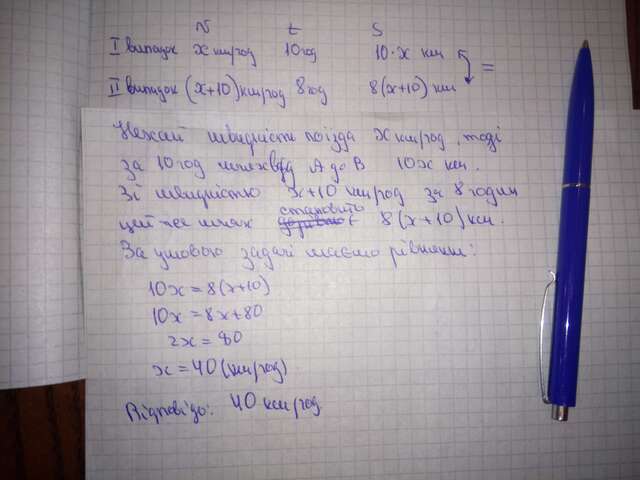 v t S
I випадок x км/год 10 год 10·x км
II випадок (x+10) км/год 8 год 8(x+10) км =
Нехай швидкість поїзда x км/год, тоді
за 10 год шлях від A до B 10x км.
Зі швидкістю x+10 км/год за 8 годин
цей же шлях становить 8(x+10) км.
За умовою задачі маємо рівняння:
10x = 8(x+10)
10x = 8x+80
2x = 80
x = 40 (км/год)
Відповідь: 40 км/год